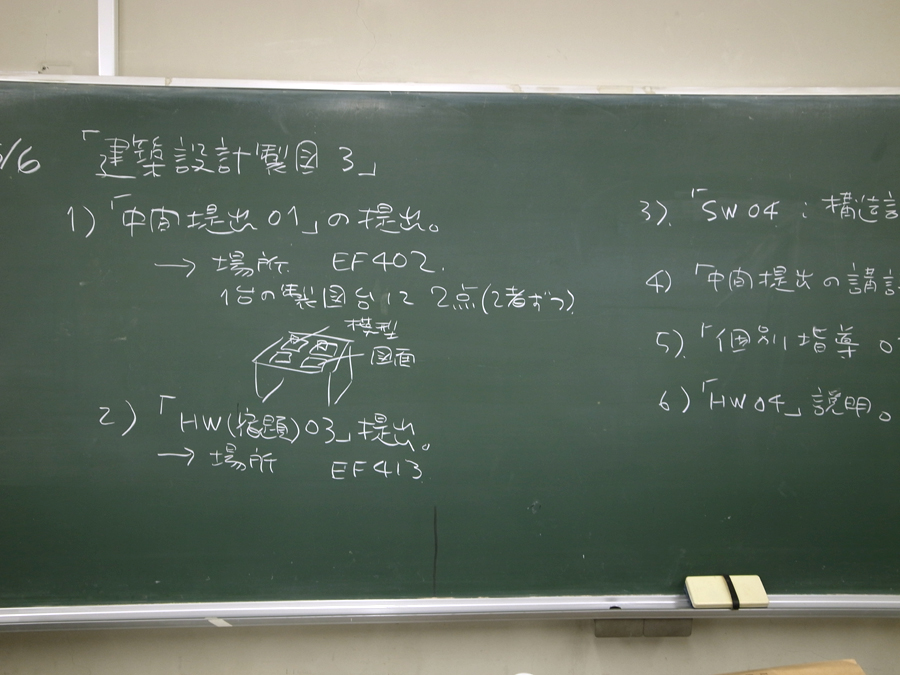 /6 「建築設計製図3」
1)「中間提出01」の提出。
→ 場所 EF402.
1台の製図台に2点(2者ずつ)
模型
図面
2)「HW(宿題)03」提出。
→ 場所 EF413
3).「SW04:構造計
4)「中間提出の講評
5).「個別指導 0
6)「HW04」説明。